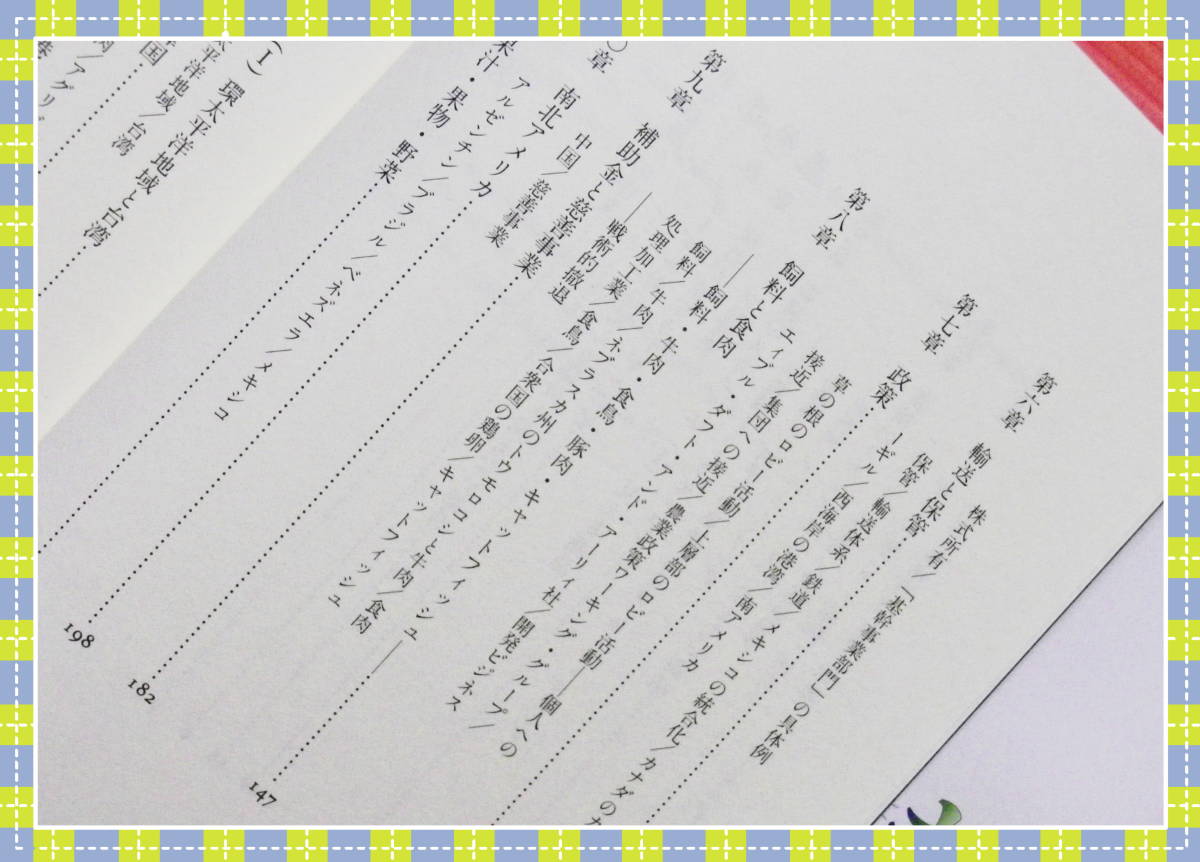 株式所有／「基幹事業部門」の具体例
第六章 輸送と保管
保管／輸送体系／鉄道／メキシコの統合化／カナダのカ
ーギル／西海岸の港湾／南アメリカ
第七章 政策
草の根のロビー活動／上層部のロビー活動──個人への
接近／集団への接近／農業政策ワーキング・グループ／
エイブル・ダフト・アンド・アーリィング社／開発ビジネス
第八章 飼料と食肉
──飼料・牛肉・食鳥・豚肉・キャットフィッシュ── 147
飼料／牛肉／ネブラスカ州のトウモロコシと牛肉／食肉
処理加工業／食鳥／合衆国の鶏卵／キャットフィッシュ
──戦術的撤退
第九章 補助金と慈善事業 182
中国／慈善事業
〇章 南北アメリカ 198
アルゼンチン／ブラジル／ベネズエラ／メキシコ
果汁・果物・野菜
(I) 環太平洋地域と台湾
平洋地域／台湾
国
肉／アグリ